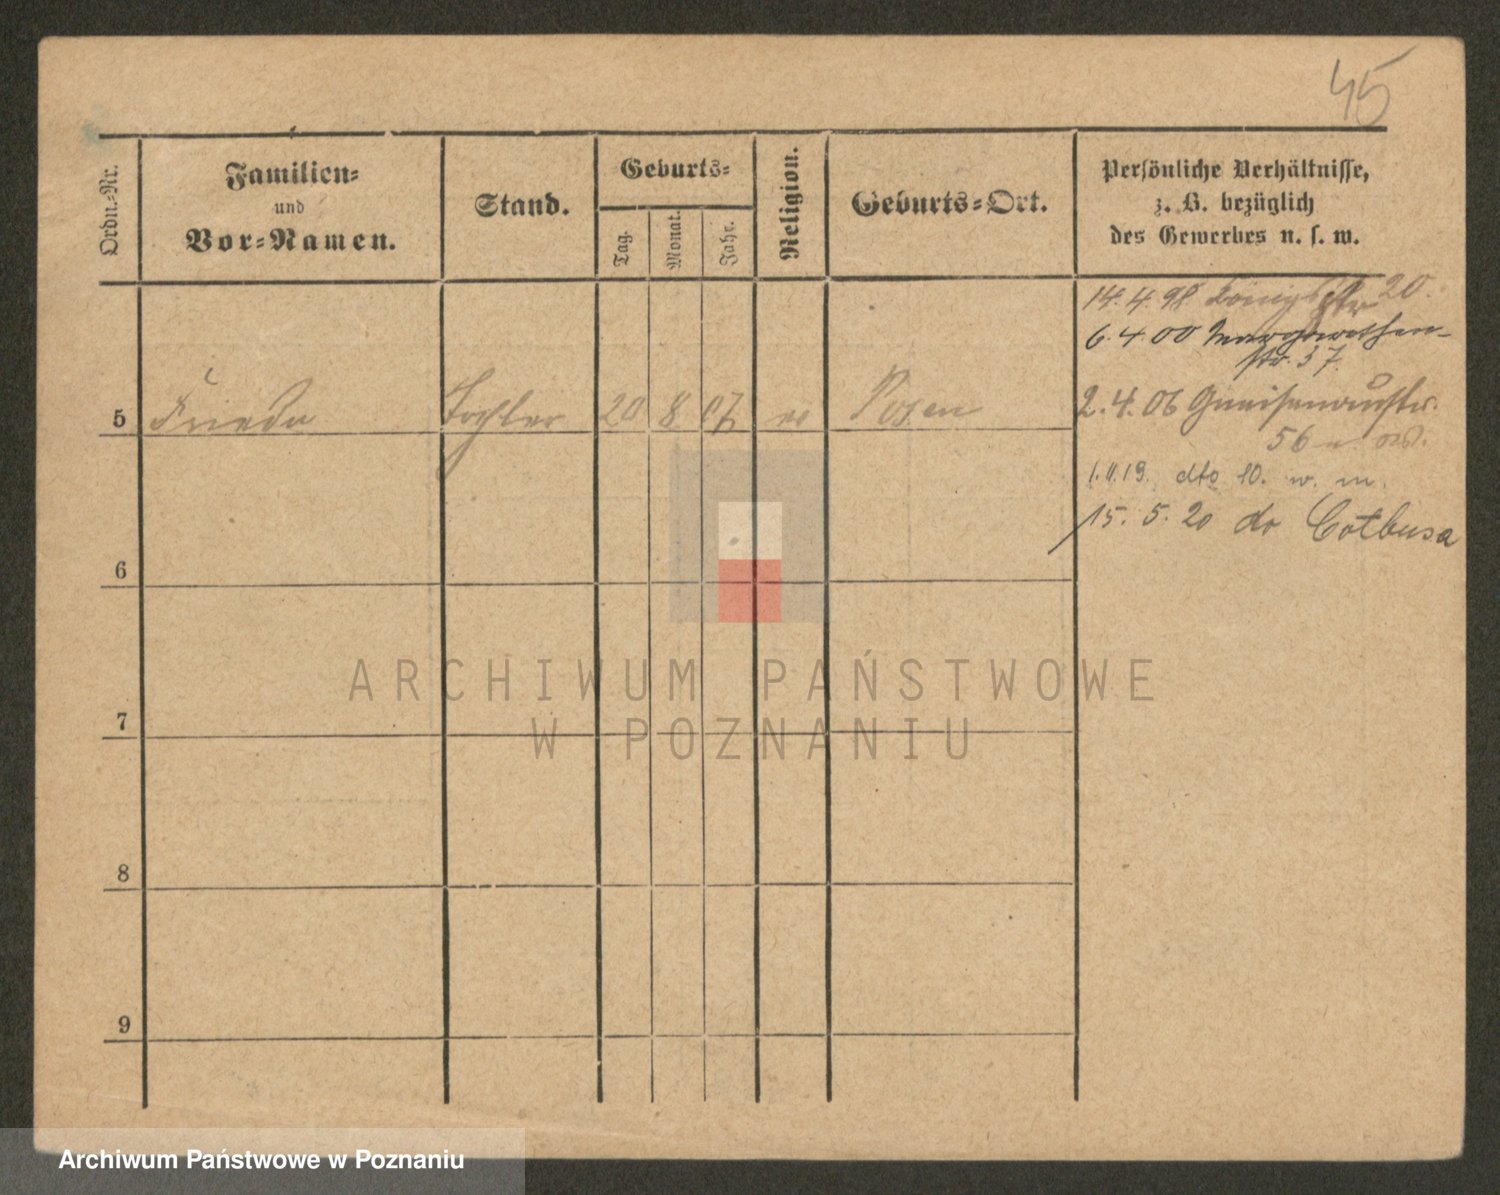 45
Ordn.-Nr.
Familien-
und
Vor-Namen.
Stand.
Geburts-
Tag.
Monat.
Jahr.
Religion.
Geburts-Ort.
Persönliche Verhältnisse,
z. B. bezüglich
des Gewerbes u. s. w.
14.4.98 Königstr 20.
6.4.00 Margarethen-
str. 37.
5 Frieda Tochter 20 8 07 ev Posen
2.4.06 Gneisenaustr.
56
1.11.19. dto 10. w. m.
15.5.20 do Cotbusa
6
7
8
9
ARCHIWUM PAŃSTWOWE
W POZNANIU
Archiwum Państwowe w Poznaniu